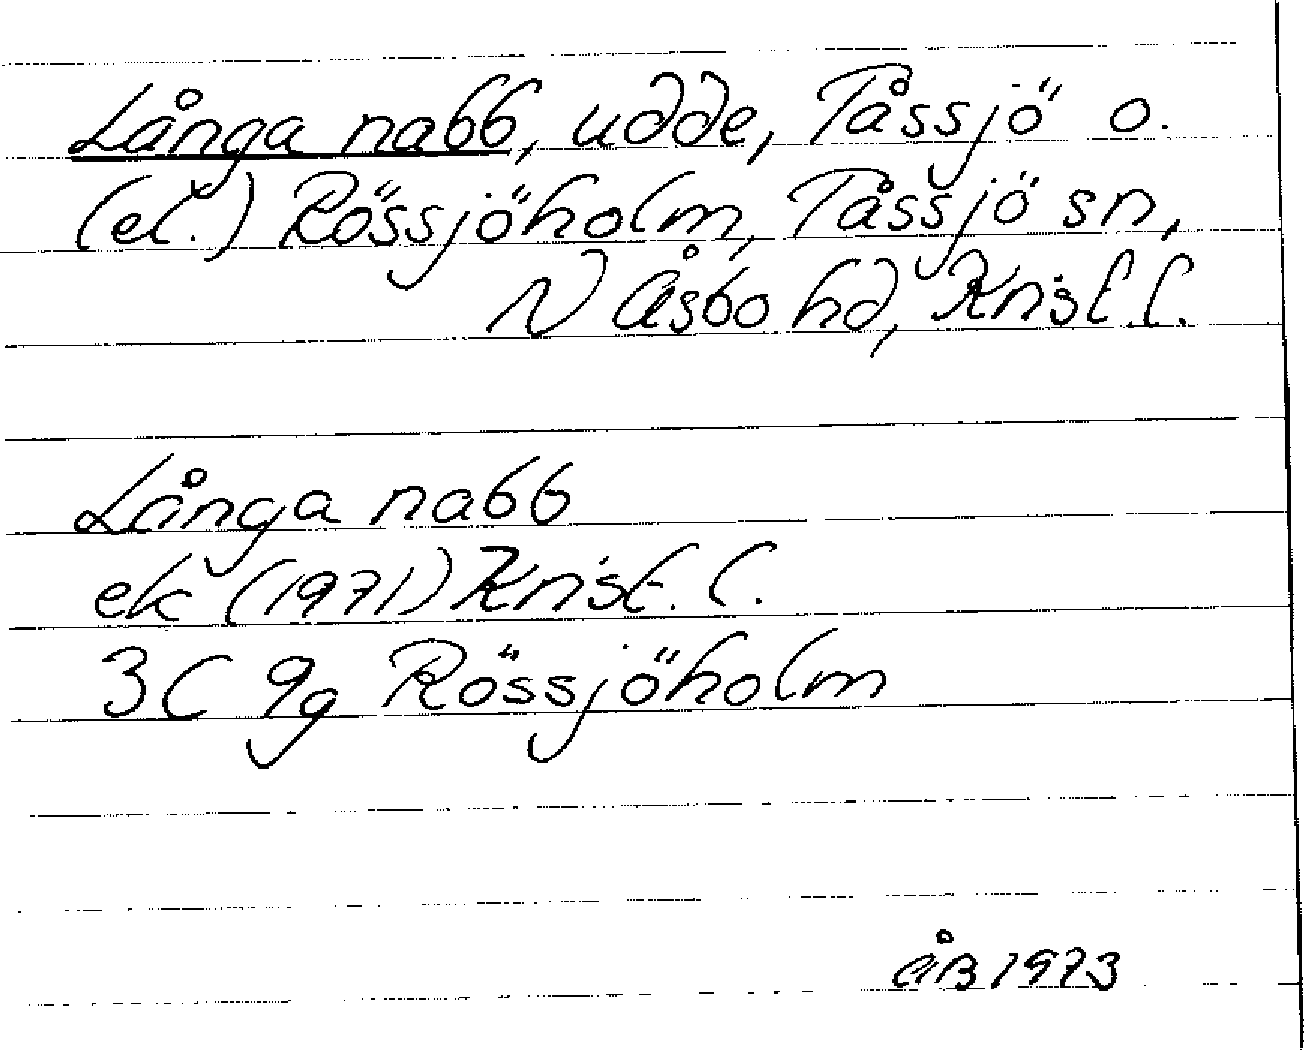 Långa nabb, udde, Tåssjö o.
(el.) Rössjöholm, Tåssjö sn,
N Åsbo hd, Krist. l.
Långa nabb
ek (1971) Krist. l.
3C 9g Rössjöholm
ÅB 1973